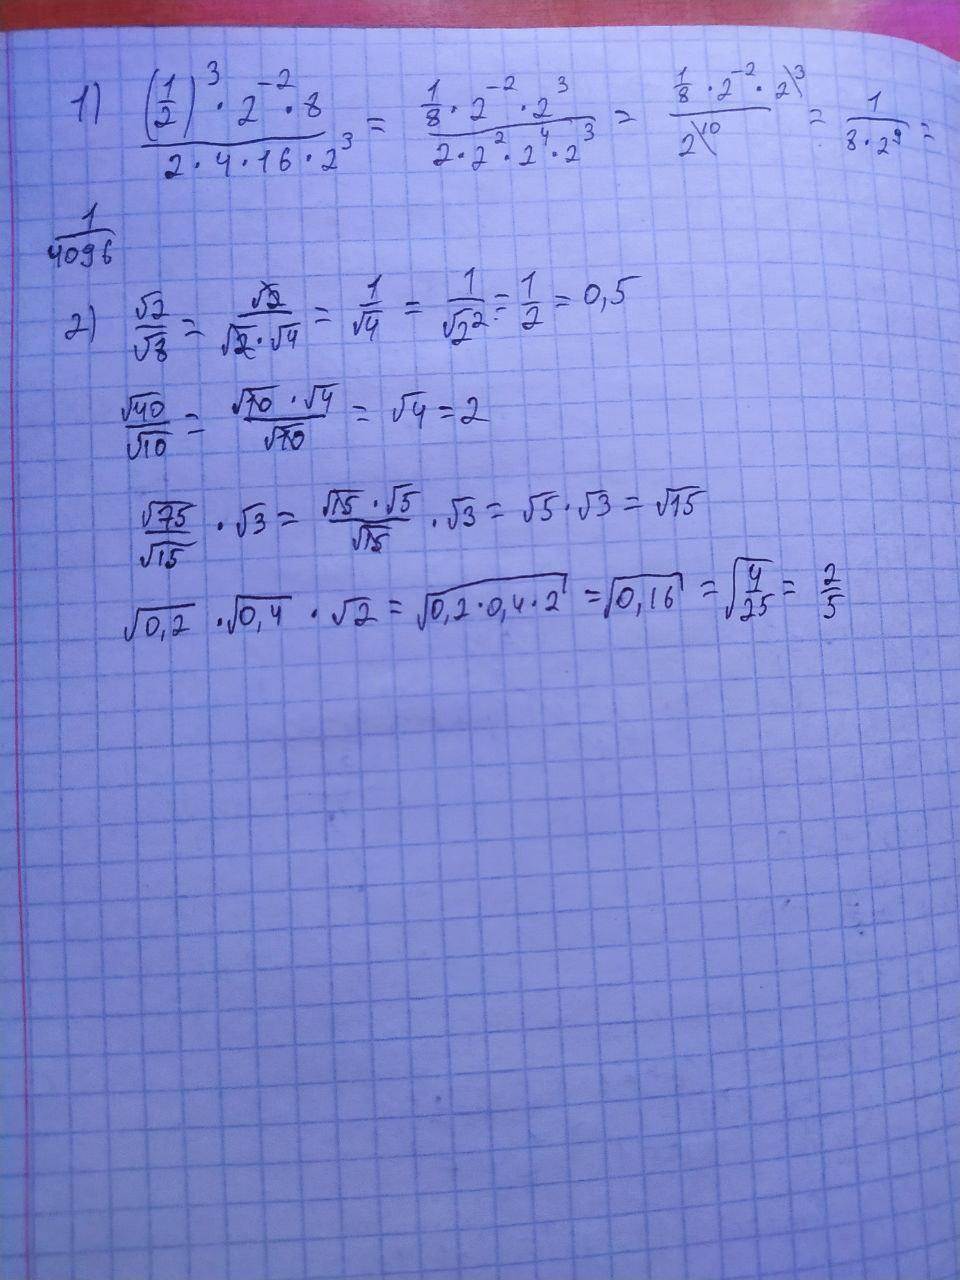 1) ((1/2)^3 · 2^-2 · 8)/(2 · 4 · 16 · 2^3) = (1/8 · 2^-2 · 2^3)/(2 · 2^2 · 2^4 · 2^3) = (1/8 · 2^-2 · 2^3)/(2^10) = 1/(8 · 2^9) =
1/4096
2) √2/√8 = √2/(√2 · √4) = 1/√4 = 1/√2^2 = 1/2 = 0,5
√40/√10 = (√10 · √4)/√10 = √4 = 2
√75/√15 · √3 = (√15 · √5)/√15 · √3 = √5 · √3 = √15
√0,2 · √0,4 · √2 = √(0,2 · 0,4 · 2) = √0,16 = √(4/25) = 2/5